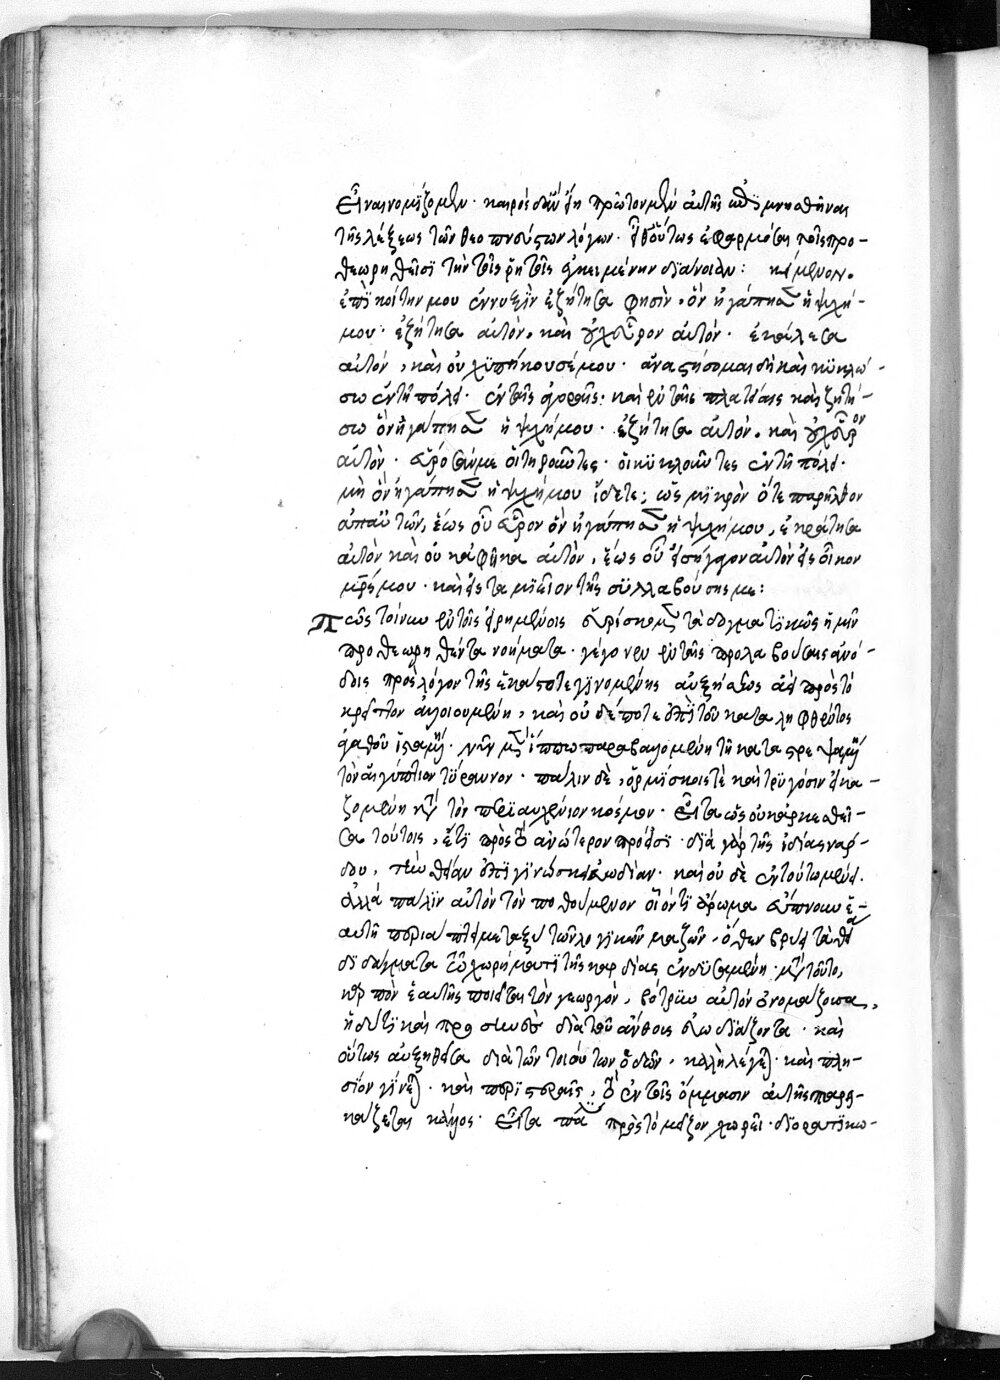 εἶναι νομίζομεν · καιρὸς δ' ἂν εἴη πρῶτον μὲν αὐτῆς ἐπιμνησθῆναι
τῆς λέξεως τῶν θεοπνεύστων λόγων · εἶθ' οὕτως ἐφαρμόσαι τοῖς προ-
θεωρηθεῖσϊ τὴν τοῖς ῥητοῖς ἐγκειμένην διάνοιαν : κείμενον.
ἐπῒ κοίτην μου ἐν νυξῒν ἐζήτησα φησὶν · ὃν ἠγάπησεν ἡ ψυχή-
μου · ἐζήτησα αὐτὸν, καὶ οὐχ εὗρον αὐτόν · ἐκάλεσα
αὐτόν, καὶ οὐχ ϋπήκουσέ μου · ἀναστήσομαι δὴ καὶ κϋκλώ-
σω ἐν τῇ πόλει · ἐν ταῖς ἀγοραῖς · καὶ ἐν ταῖς πλατείαις καὶ ζητή-
σω ὃν ἠγάπησεν ἡ ψυχή μου · ἐζήτησα αὐτὸν, καὶ οὐχ εὗρον
αὐτόν · εὕροσάν με οἱ τηροῦντες · οἱ κϋκλοῦντες ἐν τῇ πόλει ·
μὴ ὃν ἠγάπησεν ἡ ψυχή μου ἴδετε; ὡς μϊκρὸν ὅτε παρῆλθον
ἀπ' αὐτῶν, ἕως οὗ εὗρον ὃν ἠγάπησεν ἡ ψυχή μου, ἐκράτησα
αὐτὸν καὶ οὐκ ἀφῆκα αὐτὸν, ἕως οὗ εἰσήγαγον αὐτὸν εἰς οἶκον
μητρός μου · καὶ εἰς ταμιεῖον τῆς συλλαβούσης με :
Πῶς τοίνυν ἐν τοῖς εἰρημένοις εὑρίσκομεν τὰ δογματϊκῶς ἡμῖν
προθεωρηθέντα νοήματα · γέγονεν ἐν ταῖς προλαβούσαις ἀνό-
δοις πρὸς λόγον τῆς ἑκάστοτε γϊνομένης αὐξήσεως ἀεὶ πρὸς τὸ
κρεῖττον ἀλλοιουμένη, καὶ οὐδέποτε ἐπῒ τοῦ καταληφθέντος
ἀγαθοῦ ἱσταμένη · νῦν μὲν ἵππω παραβαλλομένη τῇ καταστρεψαμένῃ
τὸν αἰγύπτιον τύραννον · πάλιν δὲ, ὁρμίσκοις τὲ καὶ τρυγόσιν εἰκα-
ζομένη κατὰ τὸν περϊαυχένιον κόσμον · εἶτα ὡς οὐκ ἀρκεσθεῖ-
σα τούτοις, ἔτϊ πρὸς τὸ ἀνώτερον πρόεισϊ · διὰ γὰρ τῆς ἰδίας νάρ-
δου, τὴν θείαν ἐπϊγϊνώσκει εὐωδίαν · καὶ οὐδὲ ἐν τούτω μένει ·
ἀλλὰ πάλϊν αὐτὸν τὸν ποθούμενον οἷόν τϊ ἄρωμα εὔπνοον ἑ-
αυτῇ περιάπτει μεταξὺ τῶν λογϊκῶν μαζῶν · ὅθεν βρύει τὰ θεῖα
διδάγματα τῶ χωρήματι τῆς καρδίας ἐνδϋσαμένη · μετὰ τοῦτο,
καρπὸν ἑαυτῆς ποιεῖται τὸν γεωργὸν, βότρϋν αὐτὸν ὀνομάζουσα,
ἡδύ τϊ καὶ προσηνὲς διὰ τοῦ ἄνθους εὐωδϊάζοντα · καὶ
οὕτως αὐξηθεῖσα διὰ τῶν τοιούτων ὁδῶν, καλὴ λέγεται · καὶ πλη-
σίον γίνεται · καὶ περϊστεραῖς, τὸ ἐν τοῖς ὄμμασιν αὐτῆς παρει-
κάζεται κάλλος · εἶτα πάλιν πρὸς τὸ μεῖζον χωρεῖ · διορατϊκω-